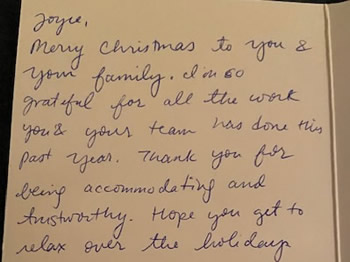 Joyce,
Merry Christmas to you &
your family. I'm so
grateful for all the work
you & your team has done this
past year. Thank you for
being accommodating and
trustworthy. Hope you get to
relax over the holidays